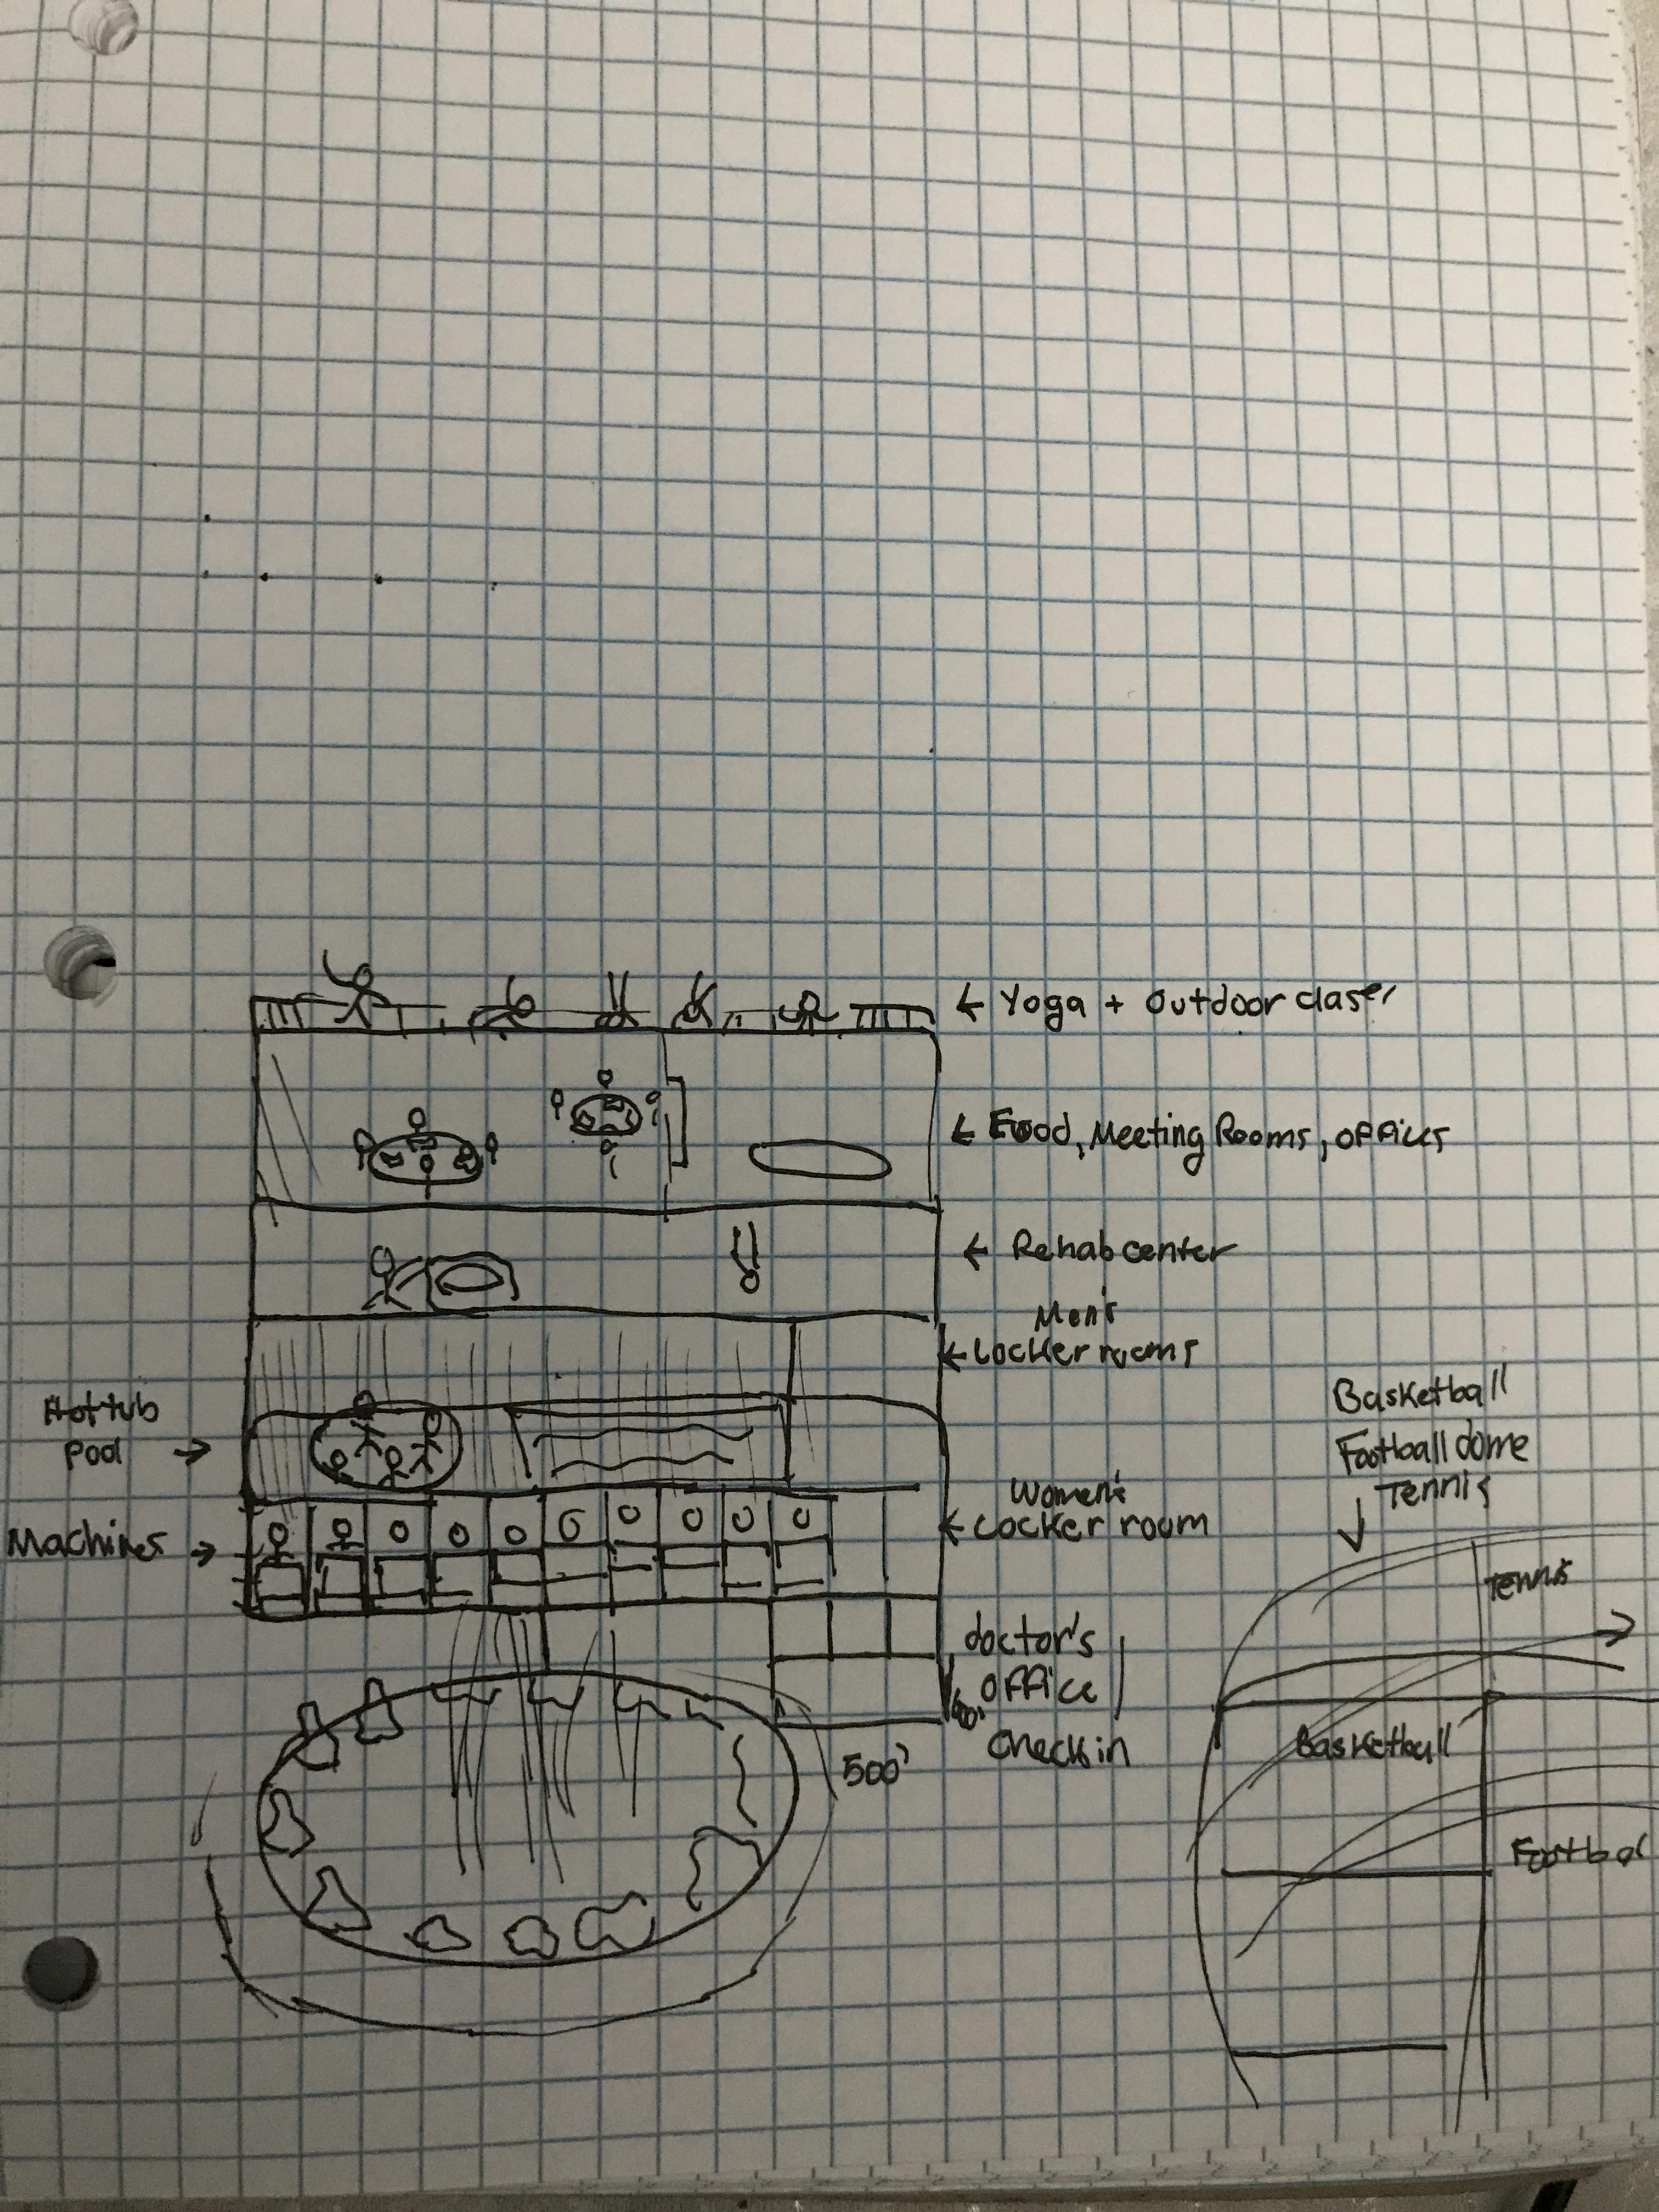 ← Yoga + Outdoor classes
← Food, Meeting Rooms, offices
← Rehab center
Men's
← Locker rooms
Hot tub
Pool →
Women's
← Locker room
Machines →
Basketball
Football dome
Tennis
↓
Tennis
doctor's
office
Check in
500'
Basketball
Footbal